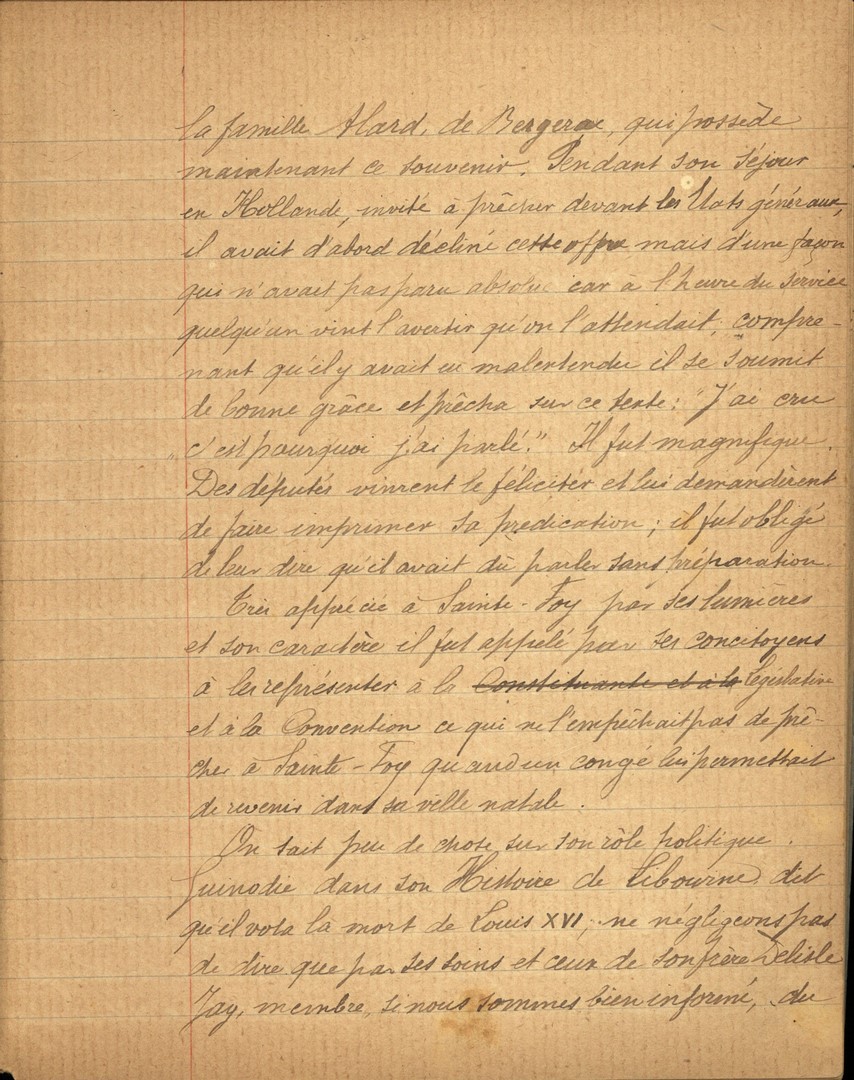 la famille Alard, de Bergerac, qui possède
maintenant ce souvenir. Pendant son séjour
en Hollande, invité à prêcher devant les Etats généraux,
il avait d'abord décliné cette offre mais d'une façon
qui n'avait pas paru absolue car à l'heure du service
quelqu'un vint l'avertir qu'on l'attendait; compre-
nant qu'il y avait eu malentendu il se soumit
de bonne grâce et prêcha sur ce texte: "J'ai cru
"c'est pourquoi j'ai parlé." Il fut magnifique.
Des députés vinrent le féliciter et lui demandèrent
de faire imprimer sa prédication; il fut obligé
de leur dire qu'il avait dû parler sans préparation.
Très apprécié à Sainte-Foy par ses lumières
et son caractère il fut appelé par ses concitoyens
à les représenter à la Constituante et à la Législative
et à la Convention ce qui ne l'empêchait pas de prê-
cher à Sainte-Foy quand un congé lui permettait
de revenir dans sa ville natale.
On sait peu de chose sur son rôle politique.
Guinodie dans son Histoire de Libourne dit
qu'il vota la mort de Louis XVI; ne négligeons pas
de dire que par ses soins et ceux de son frère Delisle
Jay, membre, si nous sommes bien informé, du